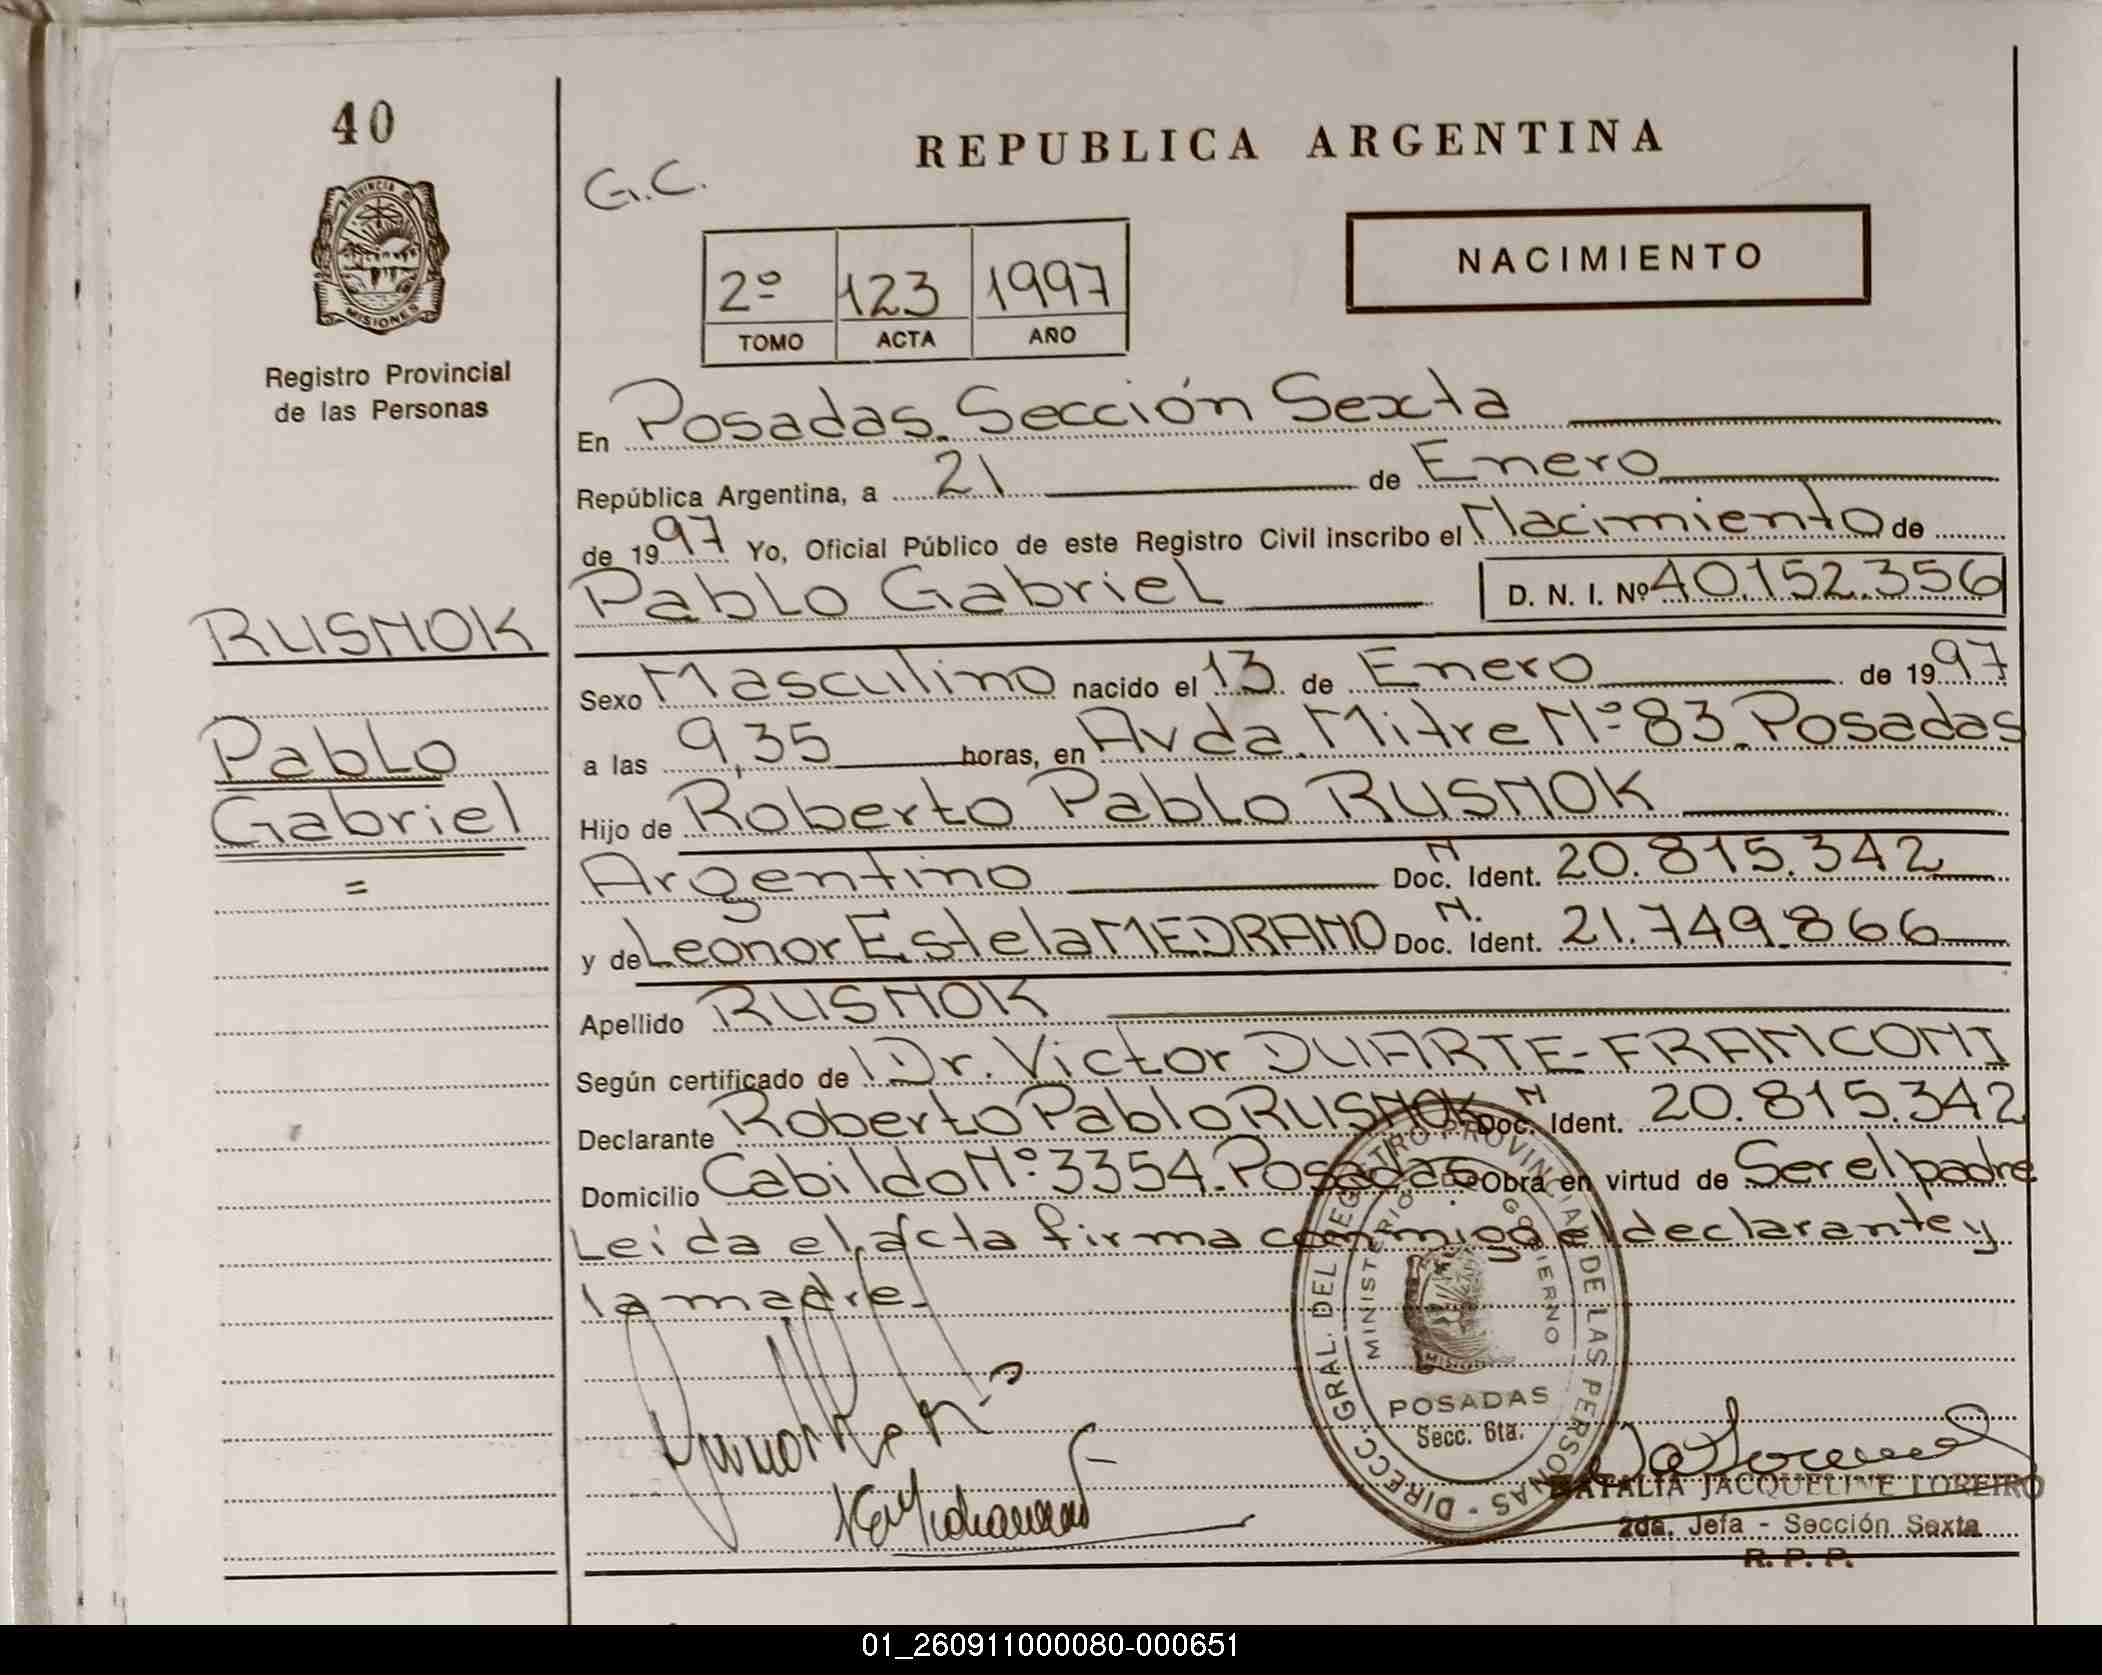 40
PROVINCIA DE
MISIONES
Registro Provincial
de las Personas
RUSNOK
Pablo
Gabriel
=
REPUBLICA ARGENTINA
G.C.
NACIMIENTO
2º 123 1997
TOMO ACTA AÑO
En Posadas. Sección Sexta
República Argentina, a 21 de Enero
de 1997 Yo, Oficial Público de este Registro Civil inscribo el Nacimiento de
Pablo Gabriel D. N. I. Nº 40.152.356
Sexo Masculino nacido el 13 de Enero de 1997
a las 9,35 horas, en Avda. Mitre Nº 83. Posadas
Hijo de Roberto Pablo RUSNOK
Argentino Doc. N Ident. 20.815.342
y de Leonor Estela MEDRANO Doc. N. Ident. 21.749.866
Apellido RUSNOK
Según certificado de Dr. Victor DUARTE-FRANCONI
Declarante Roberto Pablo RUSNOK Doc. N Ident. 20.815.342
Domicilio Cabildo Nº 3354. Posadas Obra en virtud de Ser el padre
Leida el acta firma conmigo el declarante y
la madre.
DIRECC. GRAL. DEL REGISTRO PROVINCIAL DE LAS PERSONAS -
MINISTERIO DE GOBIERNO
MISIONES
POSADAS
Secc. 6ta.
NATALIA JACQUELINE LOREIRO
2da. Jefa - Sección Sexta
R. P. P.
01_260911000080-000651